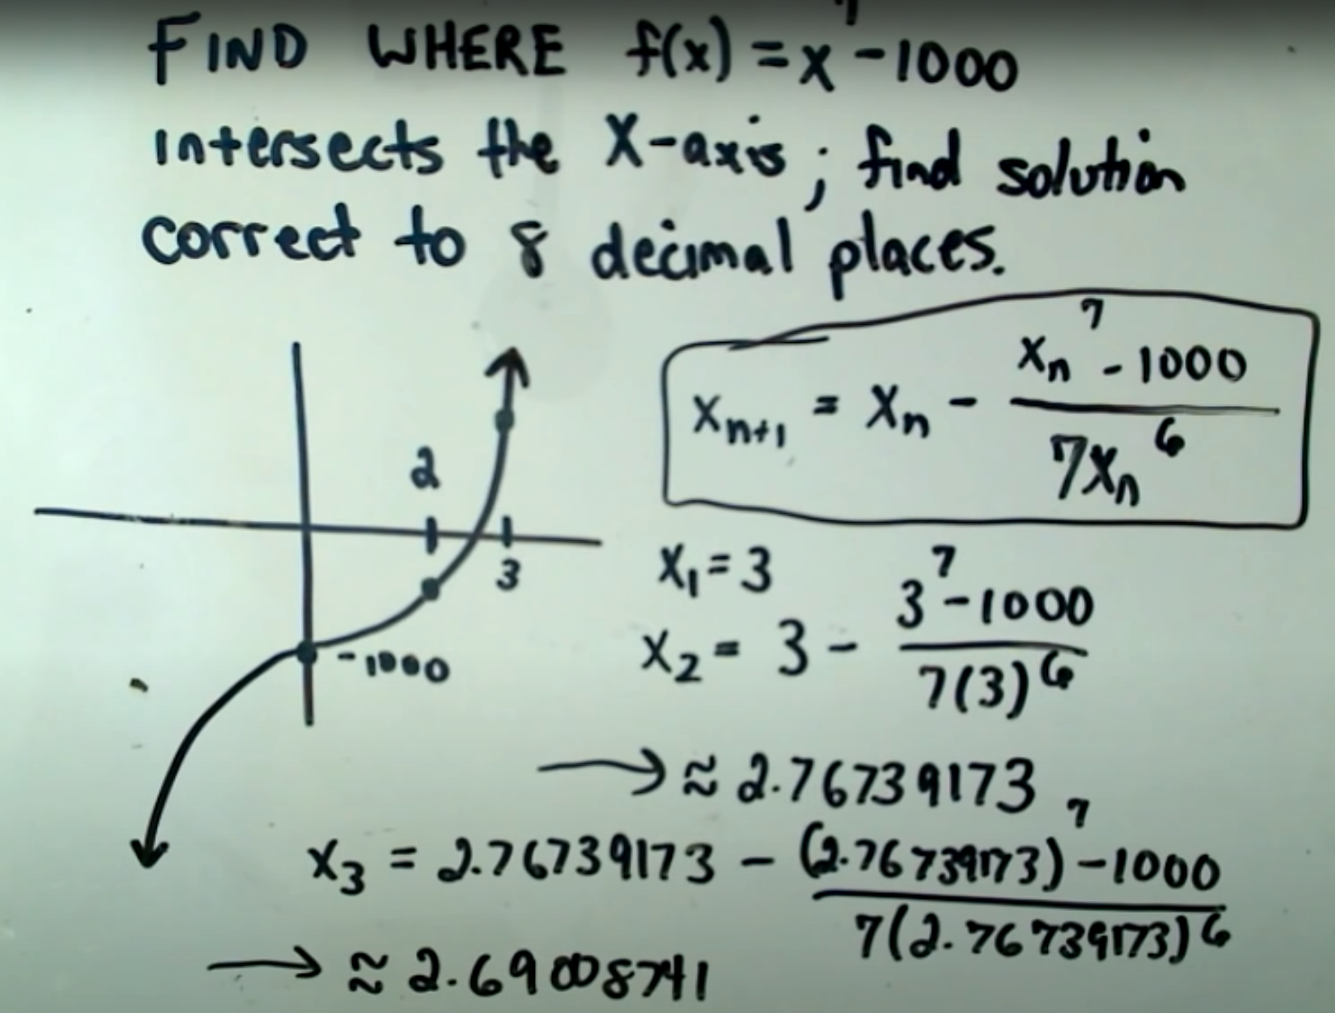 FIND WHERE f(x) = x⁷ - 1000
intersects the X-axis; find solution
correct to 8 decimal places.
xₙ₊₁ = xₙ - (xₙ⁷ - 1000)/(7xₙ⁶)
2
3
-1000
x₁ = 3
x₂ = 3 - (3⁷ - 1000)/(7(3)⁶)
→ ≈ 2.76739173
x₃ = 2.76739173 - ((2.76739173)⁷ - 1000)/(7(2.76739173)⁶)
→ ≈ 2.69008741